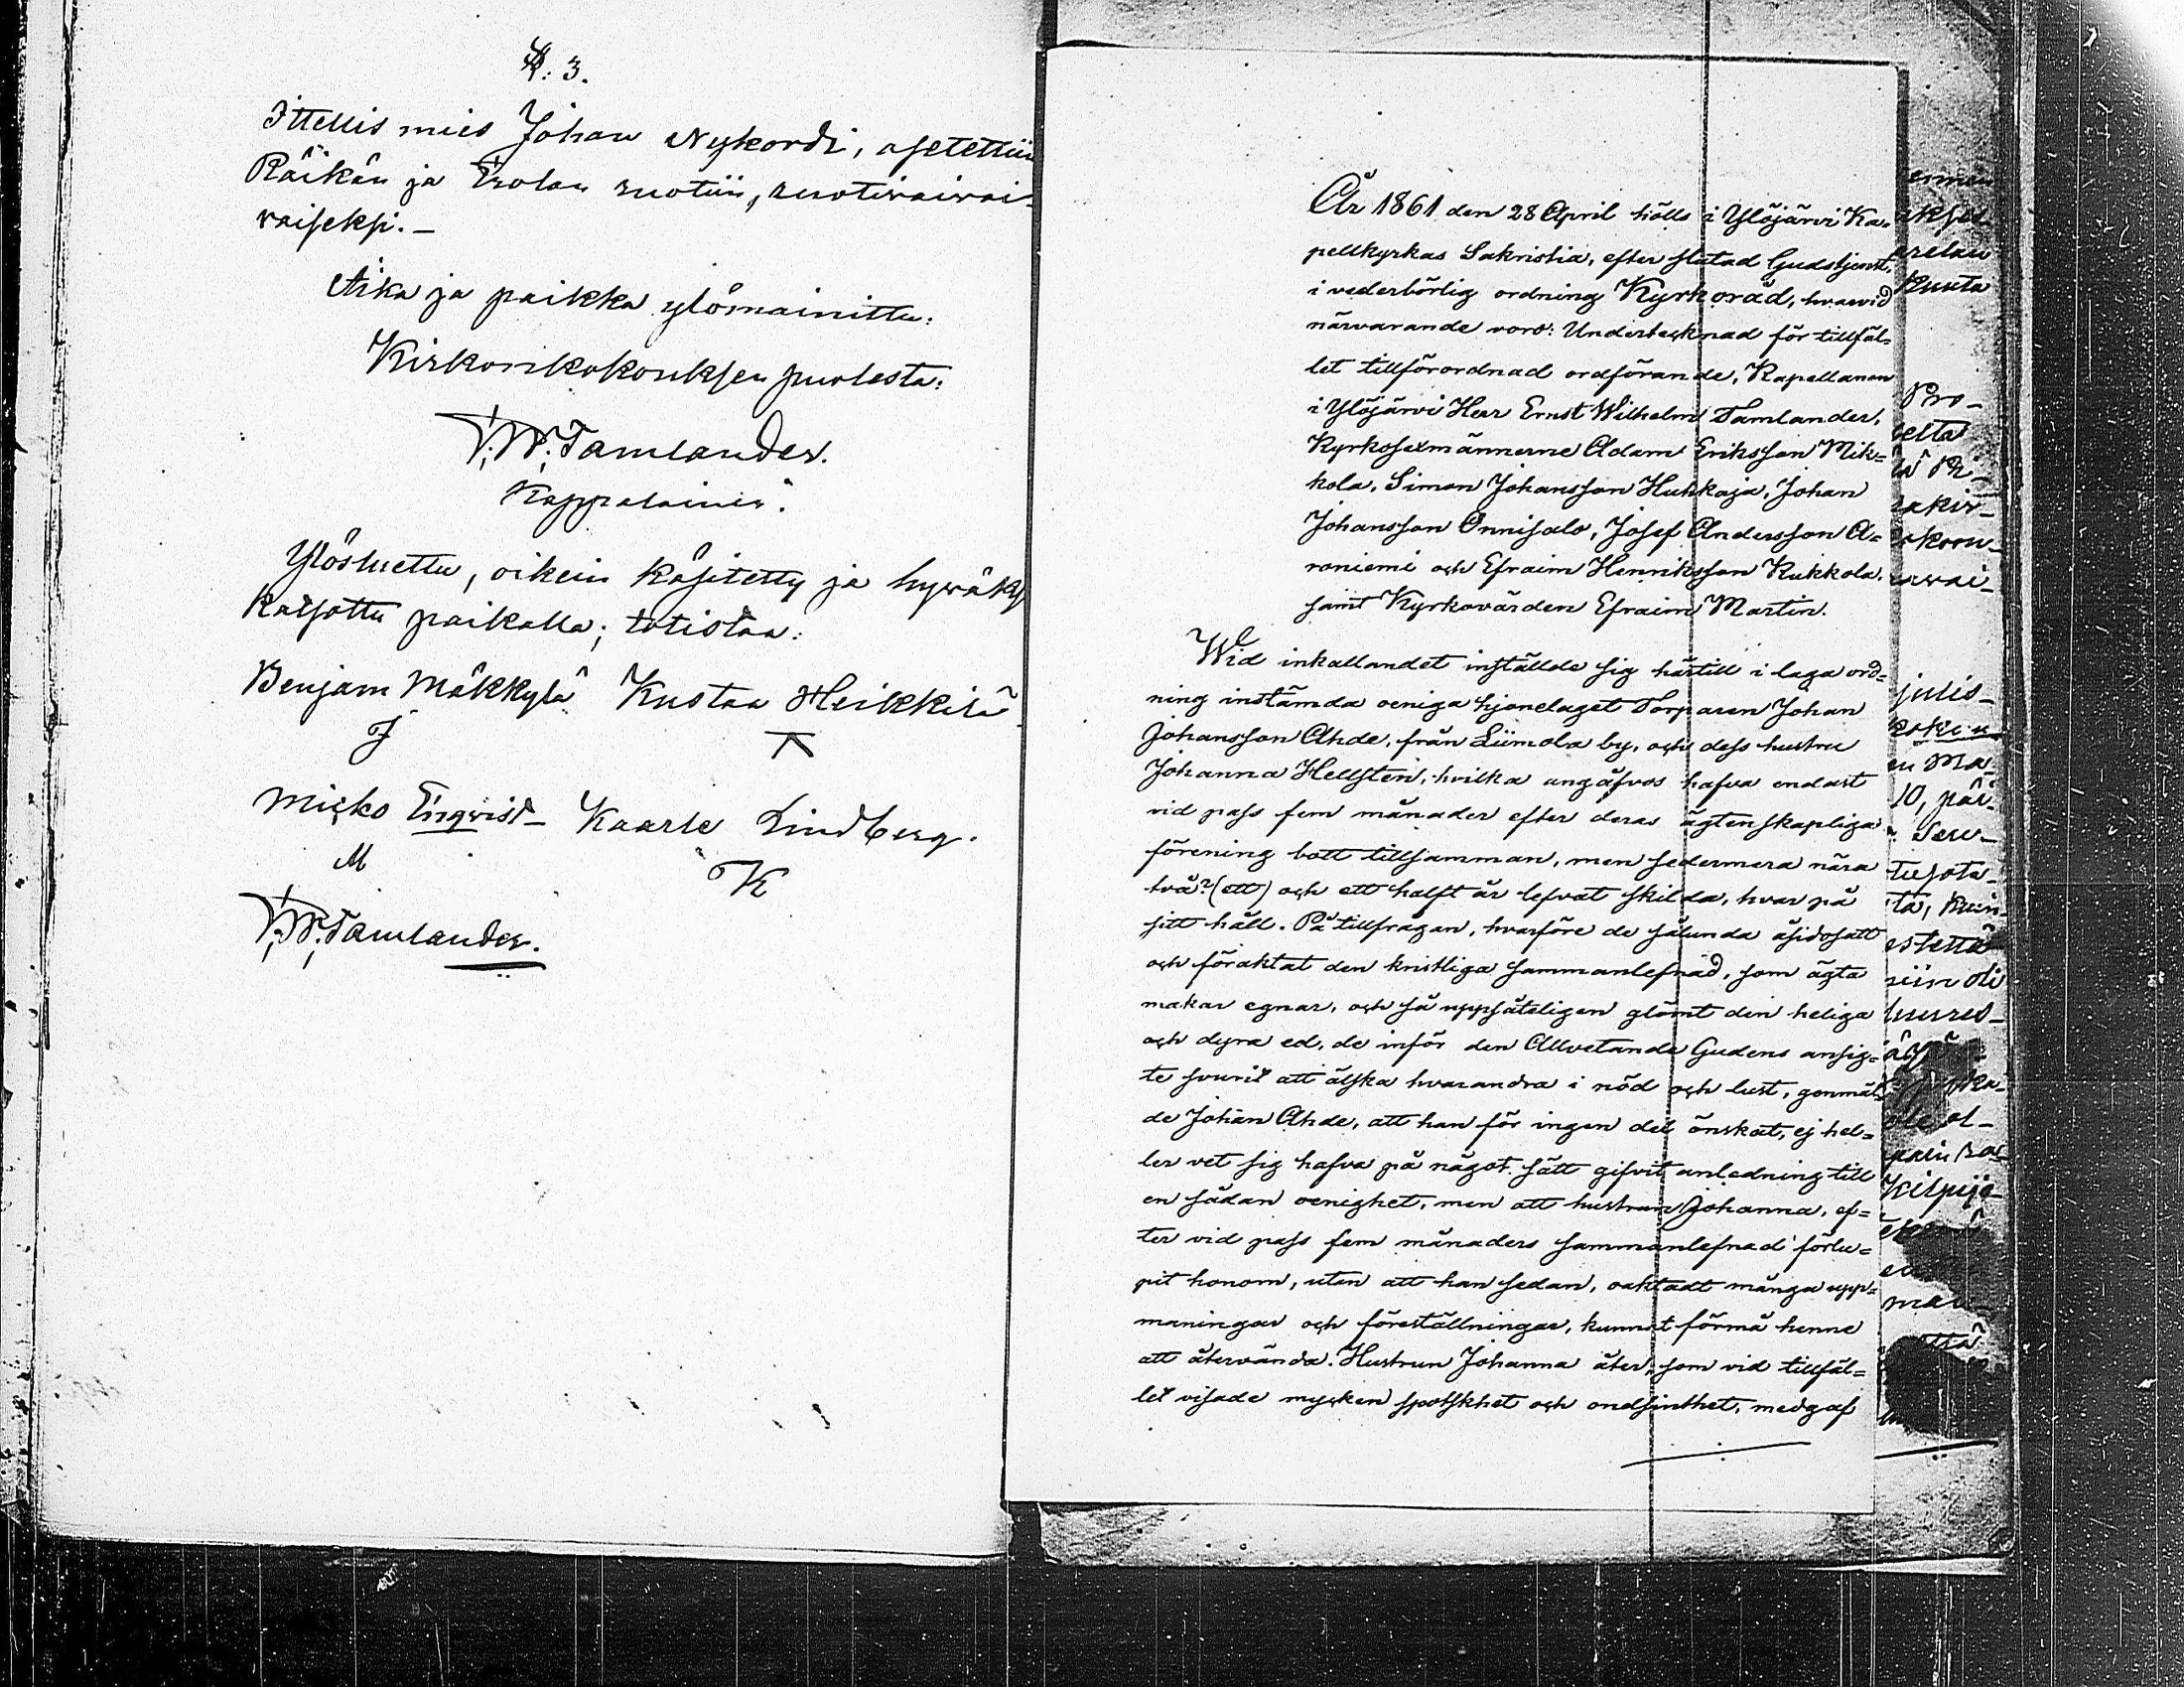 §. 3.
Ittellis mies Johan Nykordi, asetettiin
Räikän ja Erolan ruotiin, ruotiwaiwai-
vaiseksi. –
Aika ja paikka ylömainittu:
Kirkonkokouksen puolesta:
E. W. Tamlander.
Kappalainen.
Ylösluettu, oikein käsitetty ja hywäksi
katsottu paikalla; totistaa:
Benjam Mäkkylä Kustaa Heikkilä
Misko Enqvist – Kaarle Lindberg.
M K
E. W. Tamlander.
År 1861 den 28 April hölls i Ylöjärvi Ka=
pellkyrkas Sakristia, efter slutad Gudstjenst,
i vederbörlig ordning Kyrkoråd, hvarvid
närvarande voro: Undertecknad för tillfäl=
let tillförordnad ordförande, Kapellanen
i Ylöjärvi Herr Ernst Wilhelm Tamlander,
Kyrkosexmännerne Adam Eriksson Mik=
kola, Simon Johansson Huhkaja, Johan
Johansson Onnisalo, Josef Andersson A=
roniemi och Efraim Henriksson Kukkola,
samt Kyrkovärden Efraim Martin.
Wid inkallandet inställde sig härtill i laga ord=
ning instämda oeniga hjonelaget Torparen Johan
Johansson Ahde, från Liimola by, och dess hustru
Johanna Hellsten, hvilka angåfvos hafva endast
vid pass fem månader efter deras ägtenskapliga
förening bott tillsamman, men sedermera nära
två? (ett) och ett halft år lefvat skilda, hvar på
sitt håll. På tillfrågan, hvarföre de sålunda åsidosatt
och föraktat den kristliga sammanlefnad, som ägta
makar egnar, och så uppsåteligen glömt den heliga
och dyra ed, de inför den Allvetande Gudens ansig=
te svurit att älska hvarandra i nöd och lust, genmäl=
de Johan Ahde, att han för ingen del önskat, ej hel=
ler vet sig hafva på något sätt gifvit anledning till
en sådan oenighet, men att hustrun Johanna, ef=
ter vid pass fem månaders sammanlefnad förlu=
pit honom, utan att han sedan, oaktadt många upp=
maningar och föreställningar, kunnat förmå henne
att återvända. Hustrun Johanna åter, som vid tillfäl=
let visade mycken spotskhet och ondsinthet, medgaf